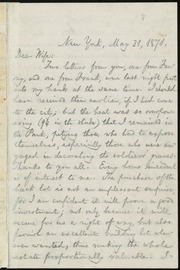 New York, May 31, 1870.
Dear Wife:
Two letters from you, one from Fan-
ny, and one from Frank, was last night put
into my hands at the same time. I should
have received them earlier, if I had come
to the city; but the heat was so overbear-
ing (98 in the shade) that I remained in
the Park, pitying those who had to expose
themselves, especially those who were en-
gaged in decorating the soldiers' graves.
Thanks to you all. Every home incident
is of interest to me. The purchase of the
back lot is not an unpleasant surprise,
for I am confident it will prove a good
investment, not only because it will
secure for us a right of way, but also
furnish an excellent building lot when-
ever wanted, thus making the whole
estate proportionally valuable. I